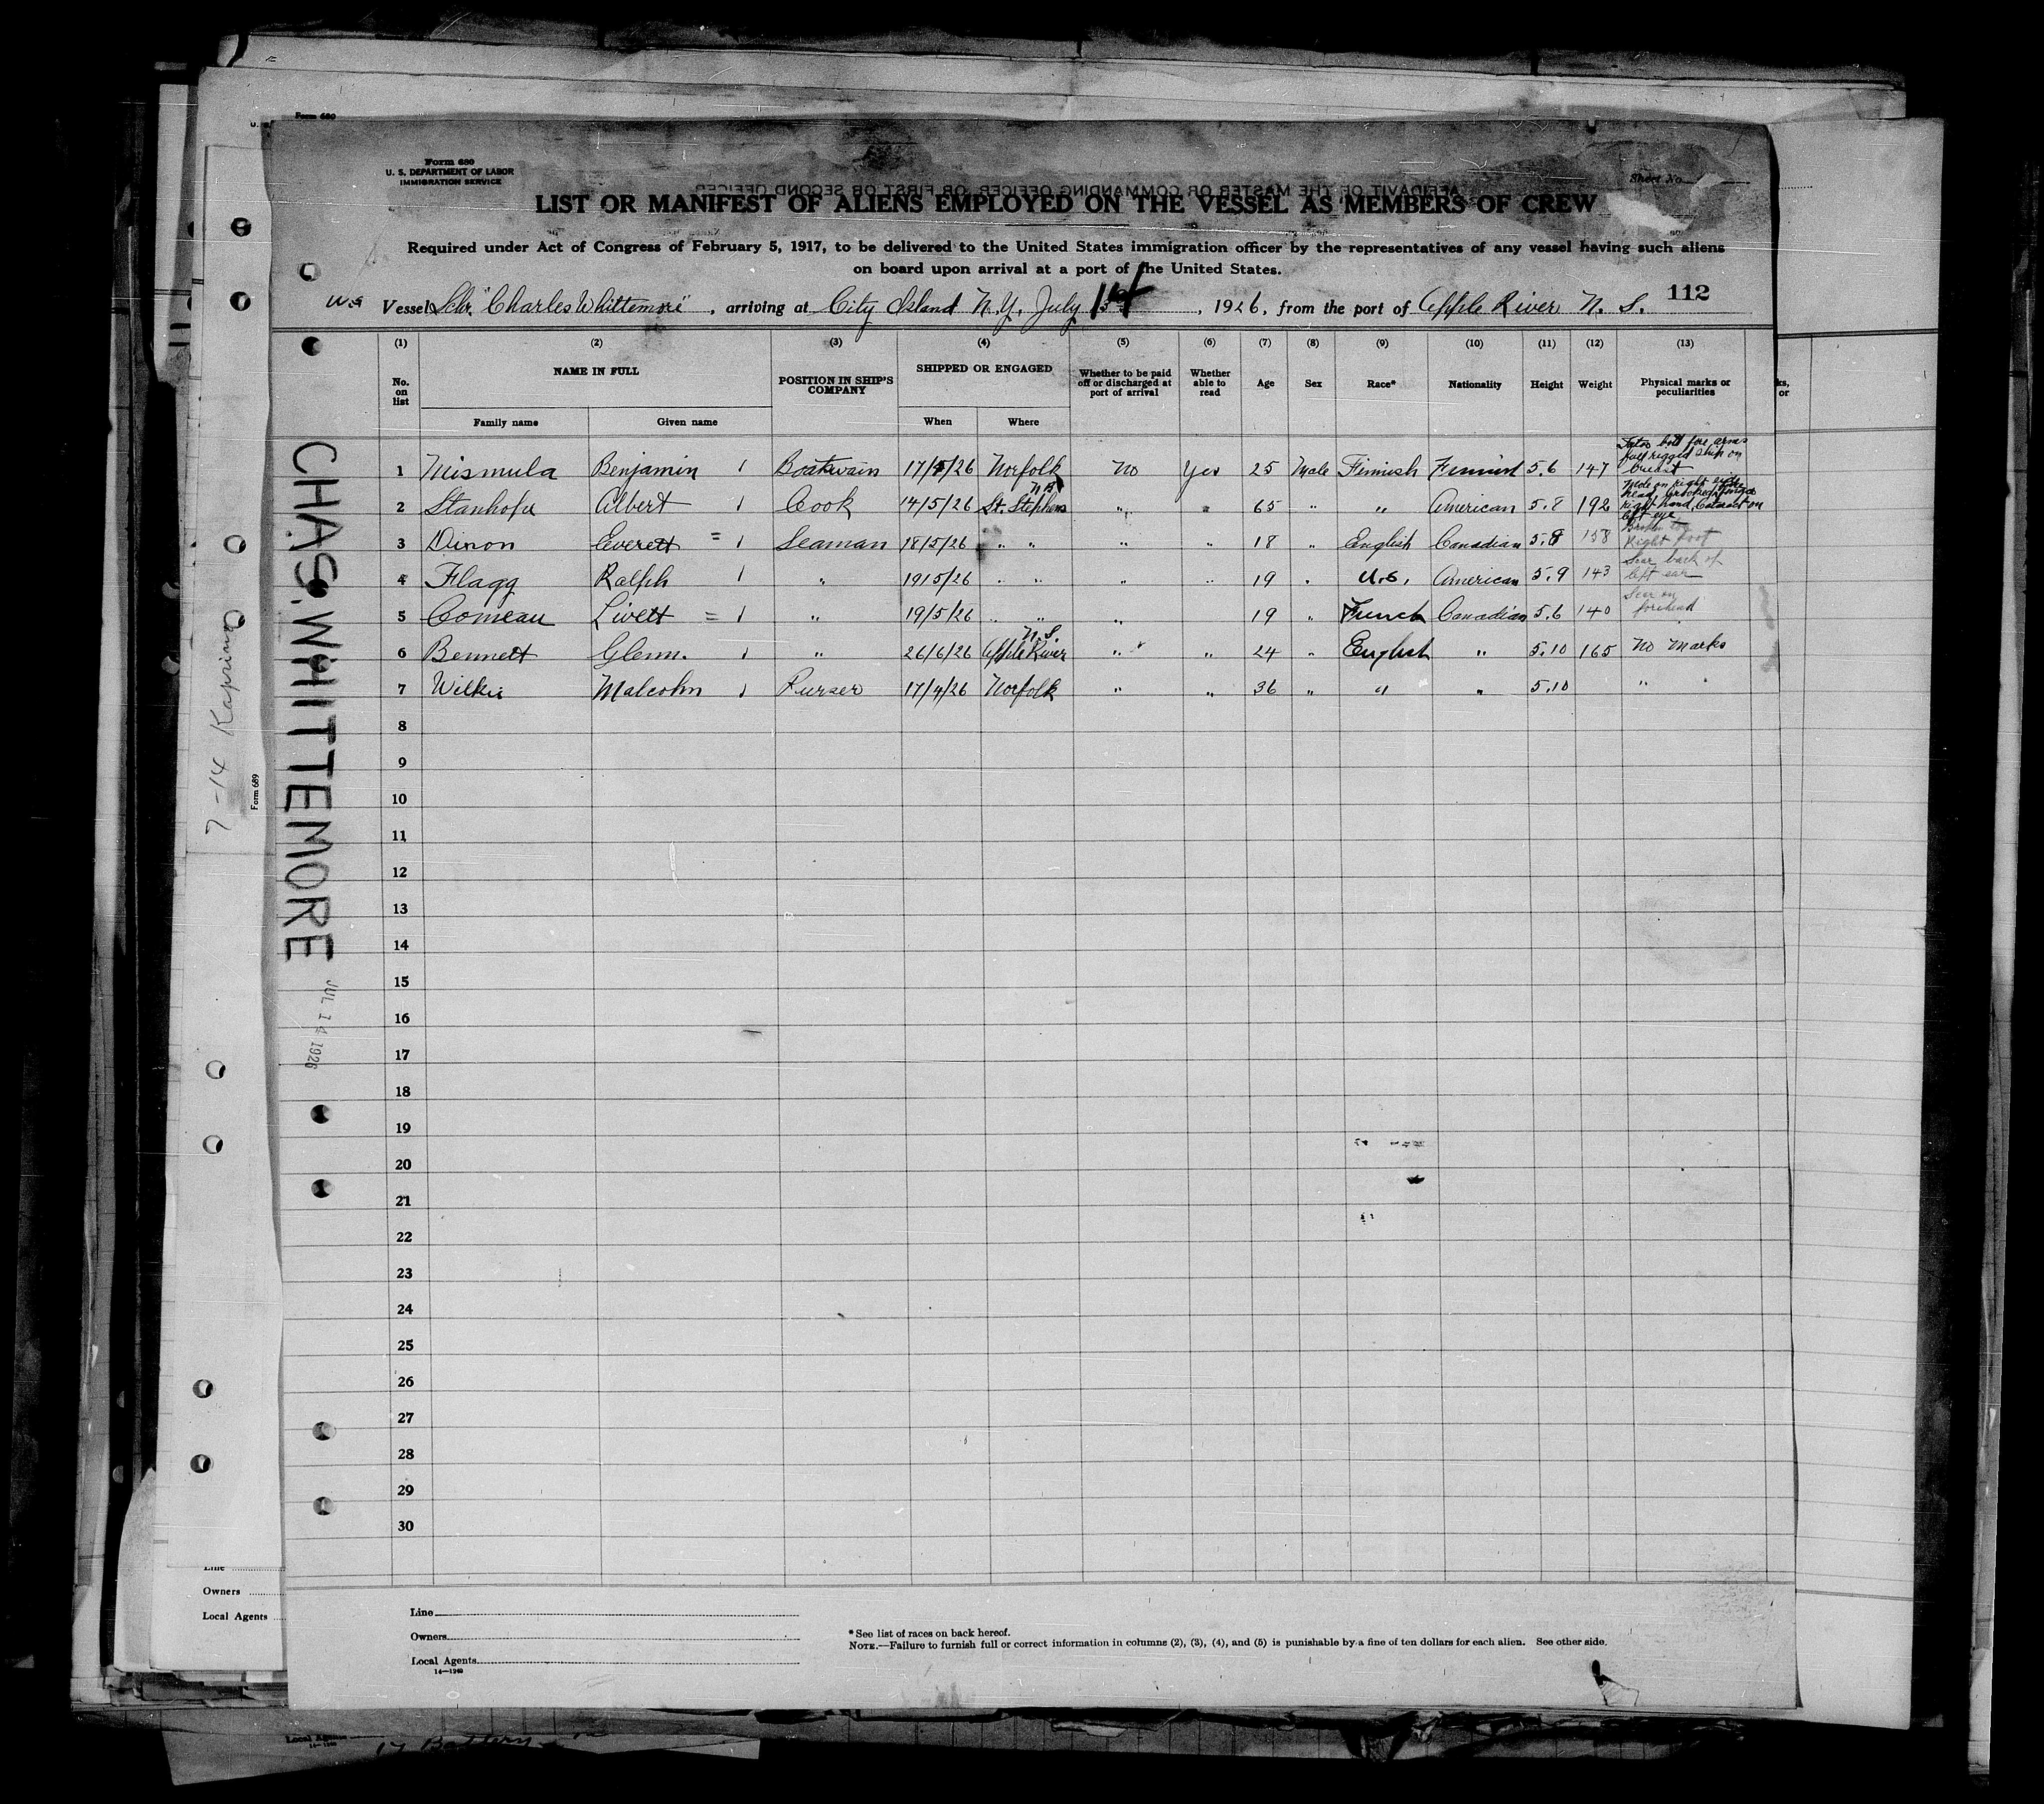 Form 680
U. S. DEPARTMENT OF LABOR
IMMIGRATION SERVICE
Sheet No.
AFFIDAVIT OF THE MASTER OR COMMANDING OFFICER, OR FIRST OR SECOND OFFICER
LIST OR MANIFEST OF ALIENS EMPLOYED ON THE VESSEL AS MEMBERS OF CREW
Required under Act of Congress of February 5, 1917, to be delivered to the United States immigration officer by the representatives of any vessel having such aliens
on board upon arrival at a port of the United States.
112
Vessel Schr. "Charles Whittemore", arriving at City Island N.Y. July 14, 1926, from the port of Apple River N. S.
(1) (2) (3) (4) (5) (6) (7) (8) (9) (10) (11) (12) (13)
No. on list NAME IN FULL POSITION IN SHIP'S COMPANY SHIPPED OR ENGAGED Whether to be paid off or discharged at port of arrival Whether able to read Age Sex Race* Nationality Height Weight Physical marks or peculiarities
Family name Given name When Where
1 Nismula Benjamin 1 Boatswain 17/5/26 Norfolk No Yes 25 Male Finnish Finnish 5.6 147 Tatoo both fore arms full rigged ship on breast
2 Stanhope Albert 1 Cook 14/5/26 St. Stephens N.B. " " 65 " " American 5.8 192 Mole on right side head crooked finger right hand, Cataract on left eye
3 Dixon Everett = 1 Seaman 18/5/26 " " " " 18 " English Canadian 5.8 158 Broken toe Right foot
4 Flagg Ralph 1 " 19/5/26 " " " " 19 " U.S. American 5.9 143 Scar back of left ear
5 Comeau Livett = 1 " 19/5/26 " " " " 19 " French Canadian 5.6 140 Scar on forehead
6 Bennett Glenn. 1 " 26/6/26 Apple River N.S. " " 24 " English " 5.10 165 No Marks
7 Wilkie Malcolm 1 Purser 17/4/26 Norfolk " " 36 " " " 5.10 "
8
9
10
11
12
13
14
15
16
17
18
19
20
21
22
23
24
25
26
27
28
29
30
Line
Owners
Local Agents
14—1240
*See list of races on back hereof.
NOTE.—Failure to furnish full or correct information in columns (2), (3), (4), and (5) is punishable by a fine of ten dollars for each alien. See other side.
CHAS. WHITTEMORE
JUL 14 1926
7-14 Kaprino
Form 689
Form 680
ks,
or
Line
Owners
Local Agents
Local Agents
14—1240
17 Battery